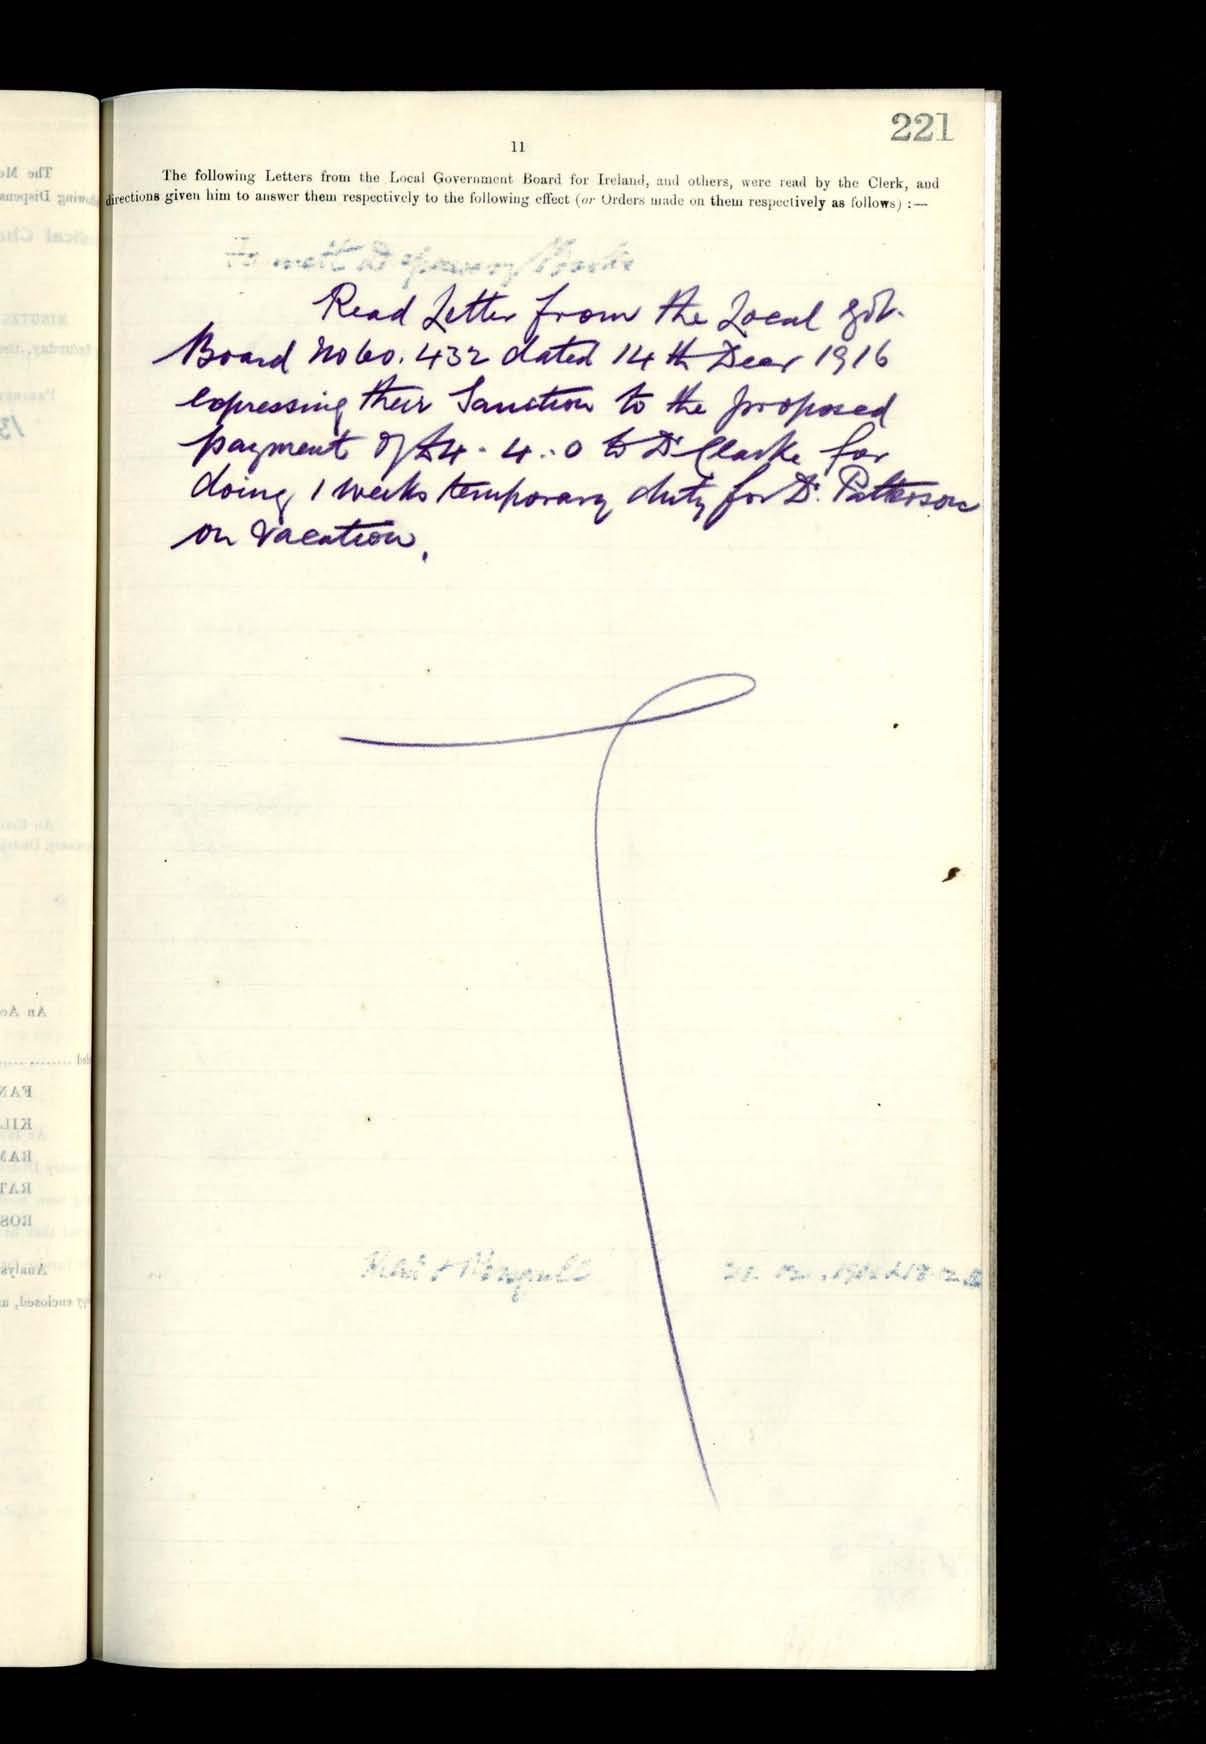 221
11
The following Letters from the Local Government Board for Ireland, and others, were read by the Clerk, and
directions given him to answer them respectively to the following effect (or Orders made on them respectively as follows) :—
Read Letter from the Local Govt.
Board No 60. 432 dated 14th Decr 1916
expressing their Sanction to the proposed
payment of £4 . 4 . . 0 to Dr Clarke for
doing 1 weeks temporary duty for Dr. Patterson
on Vacation.